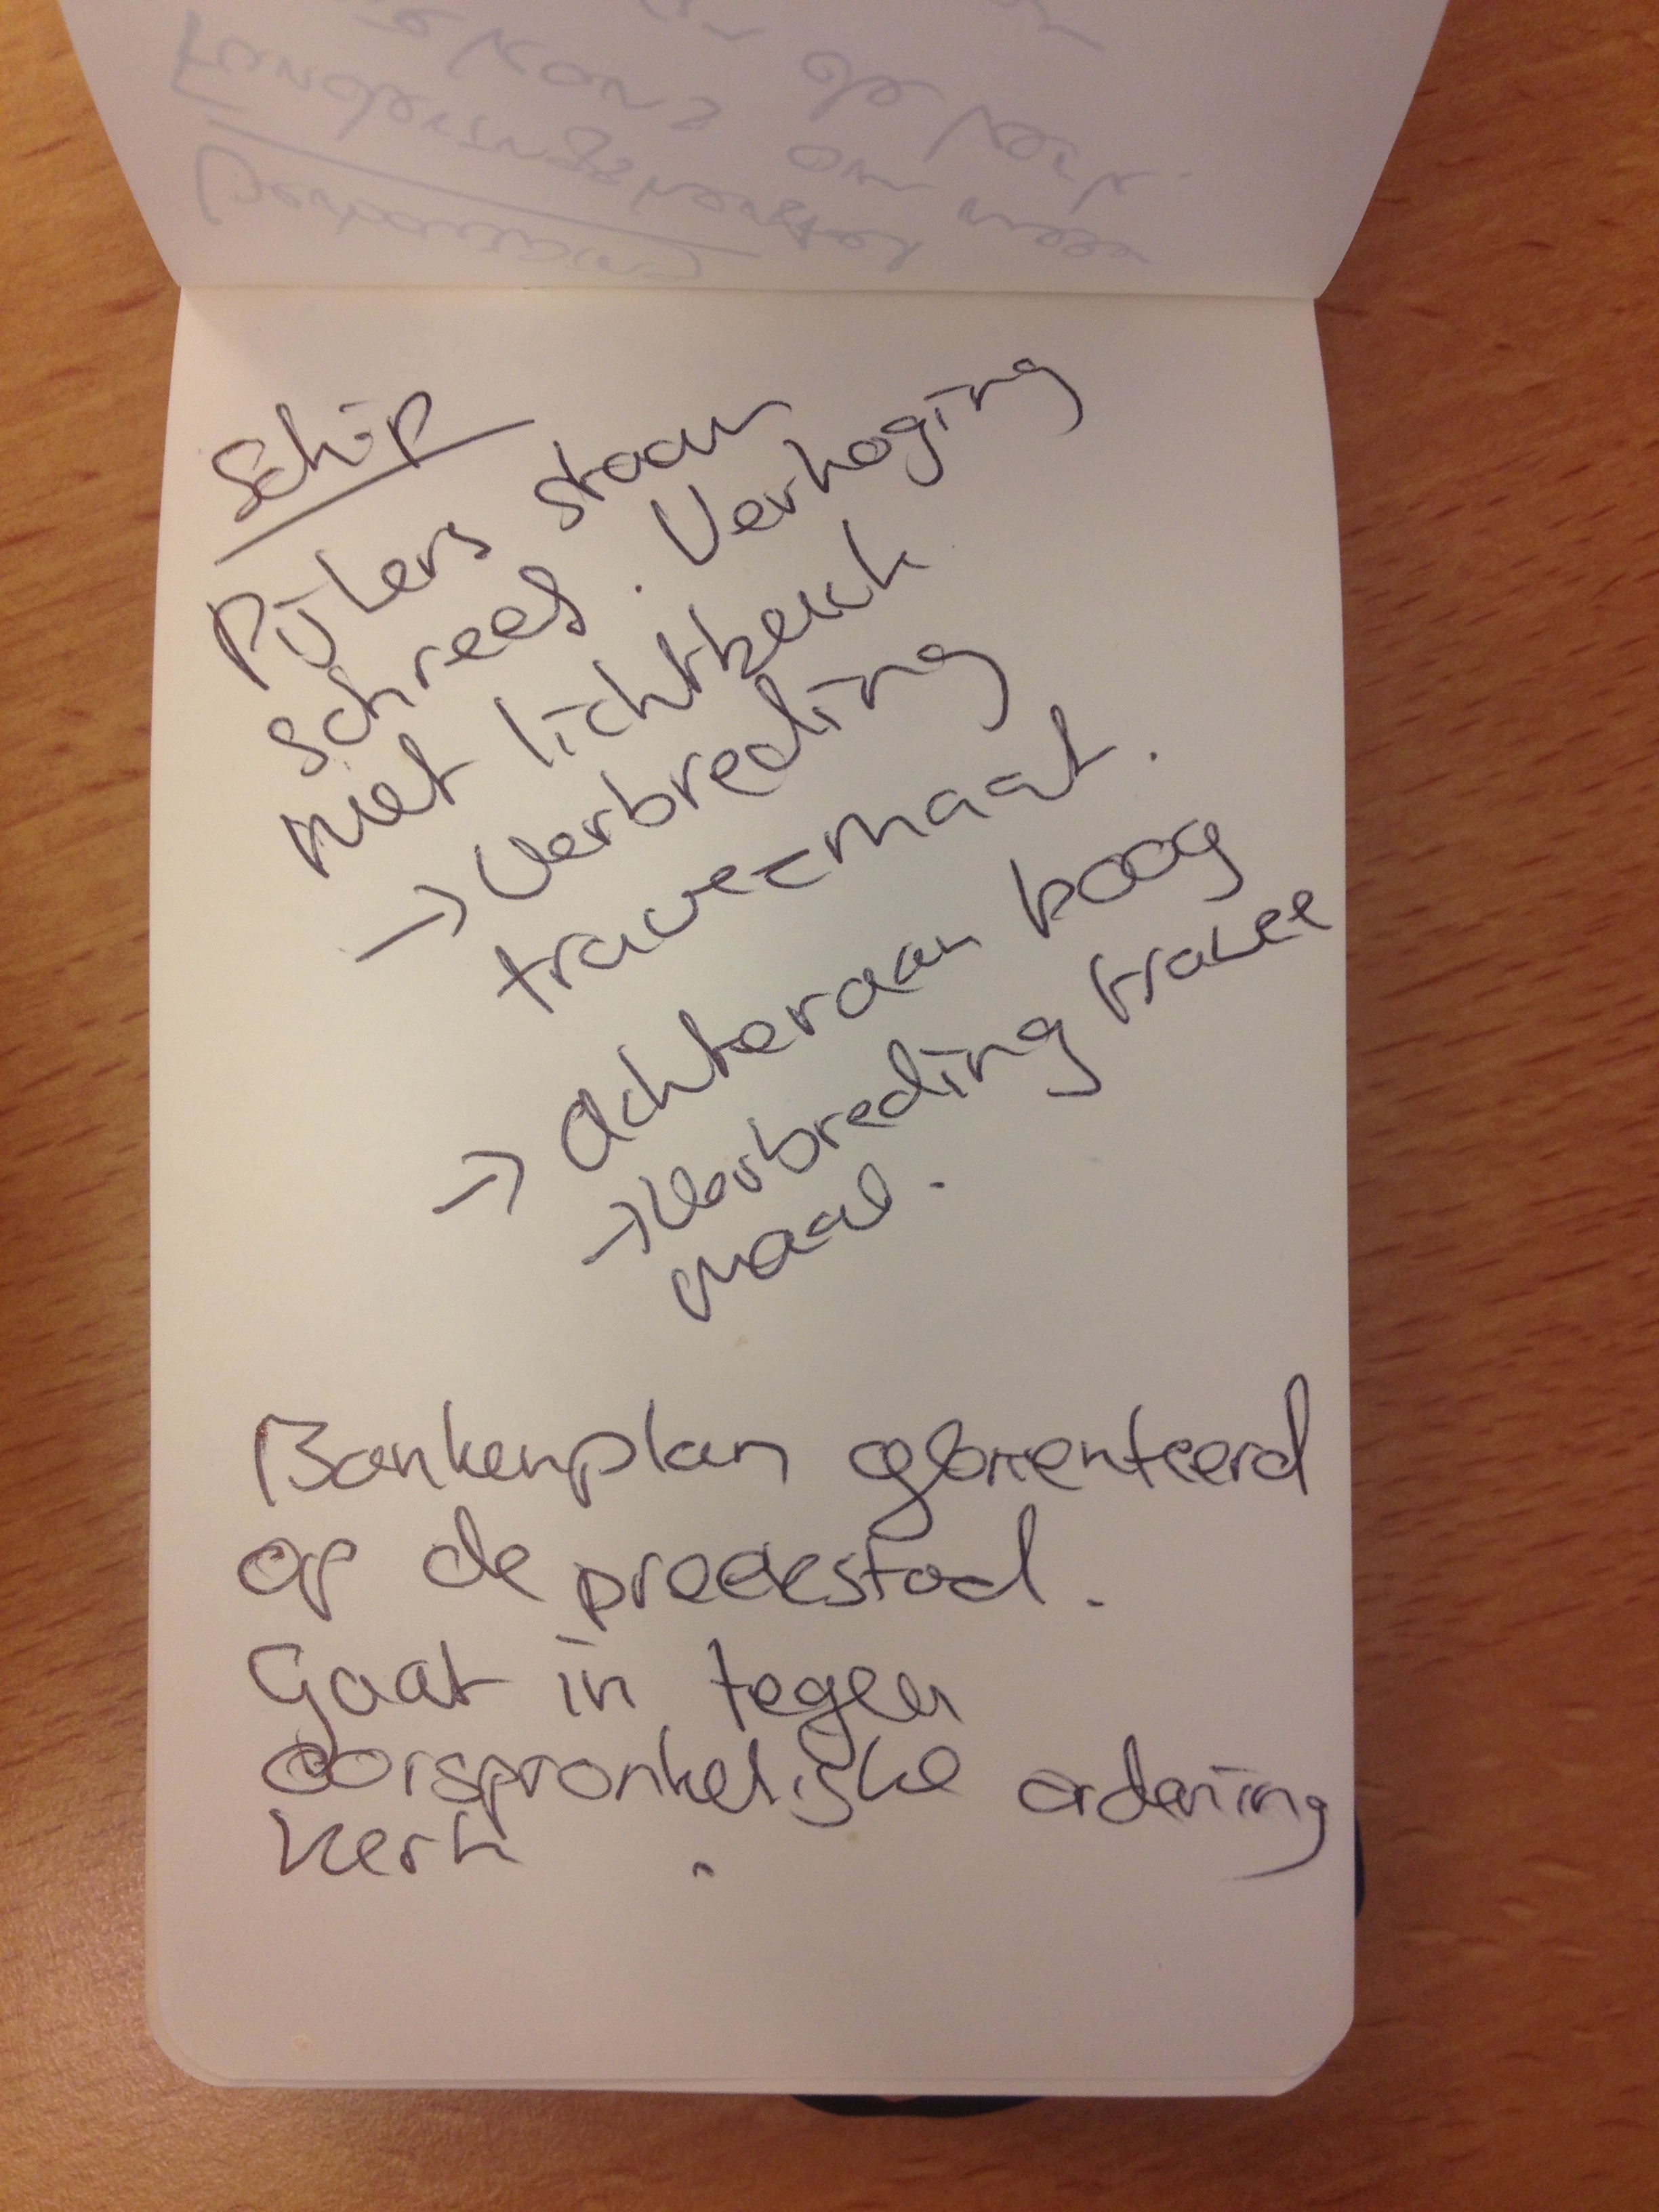 Schip
Pijlers staan
schreef. Verhoging
met lichtbeuk
→ Verbreding
traveemaat.
→ achteraan boog
→ Verbreding travee
maat.
Bankenplan georienteerd
op de preekstoel.
Gaat in tegen
oorspronkelijke ordening
kerk.